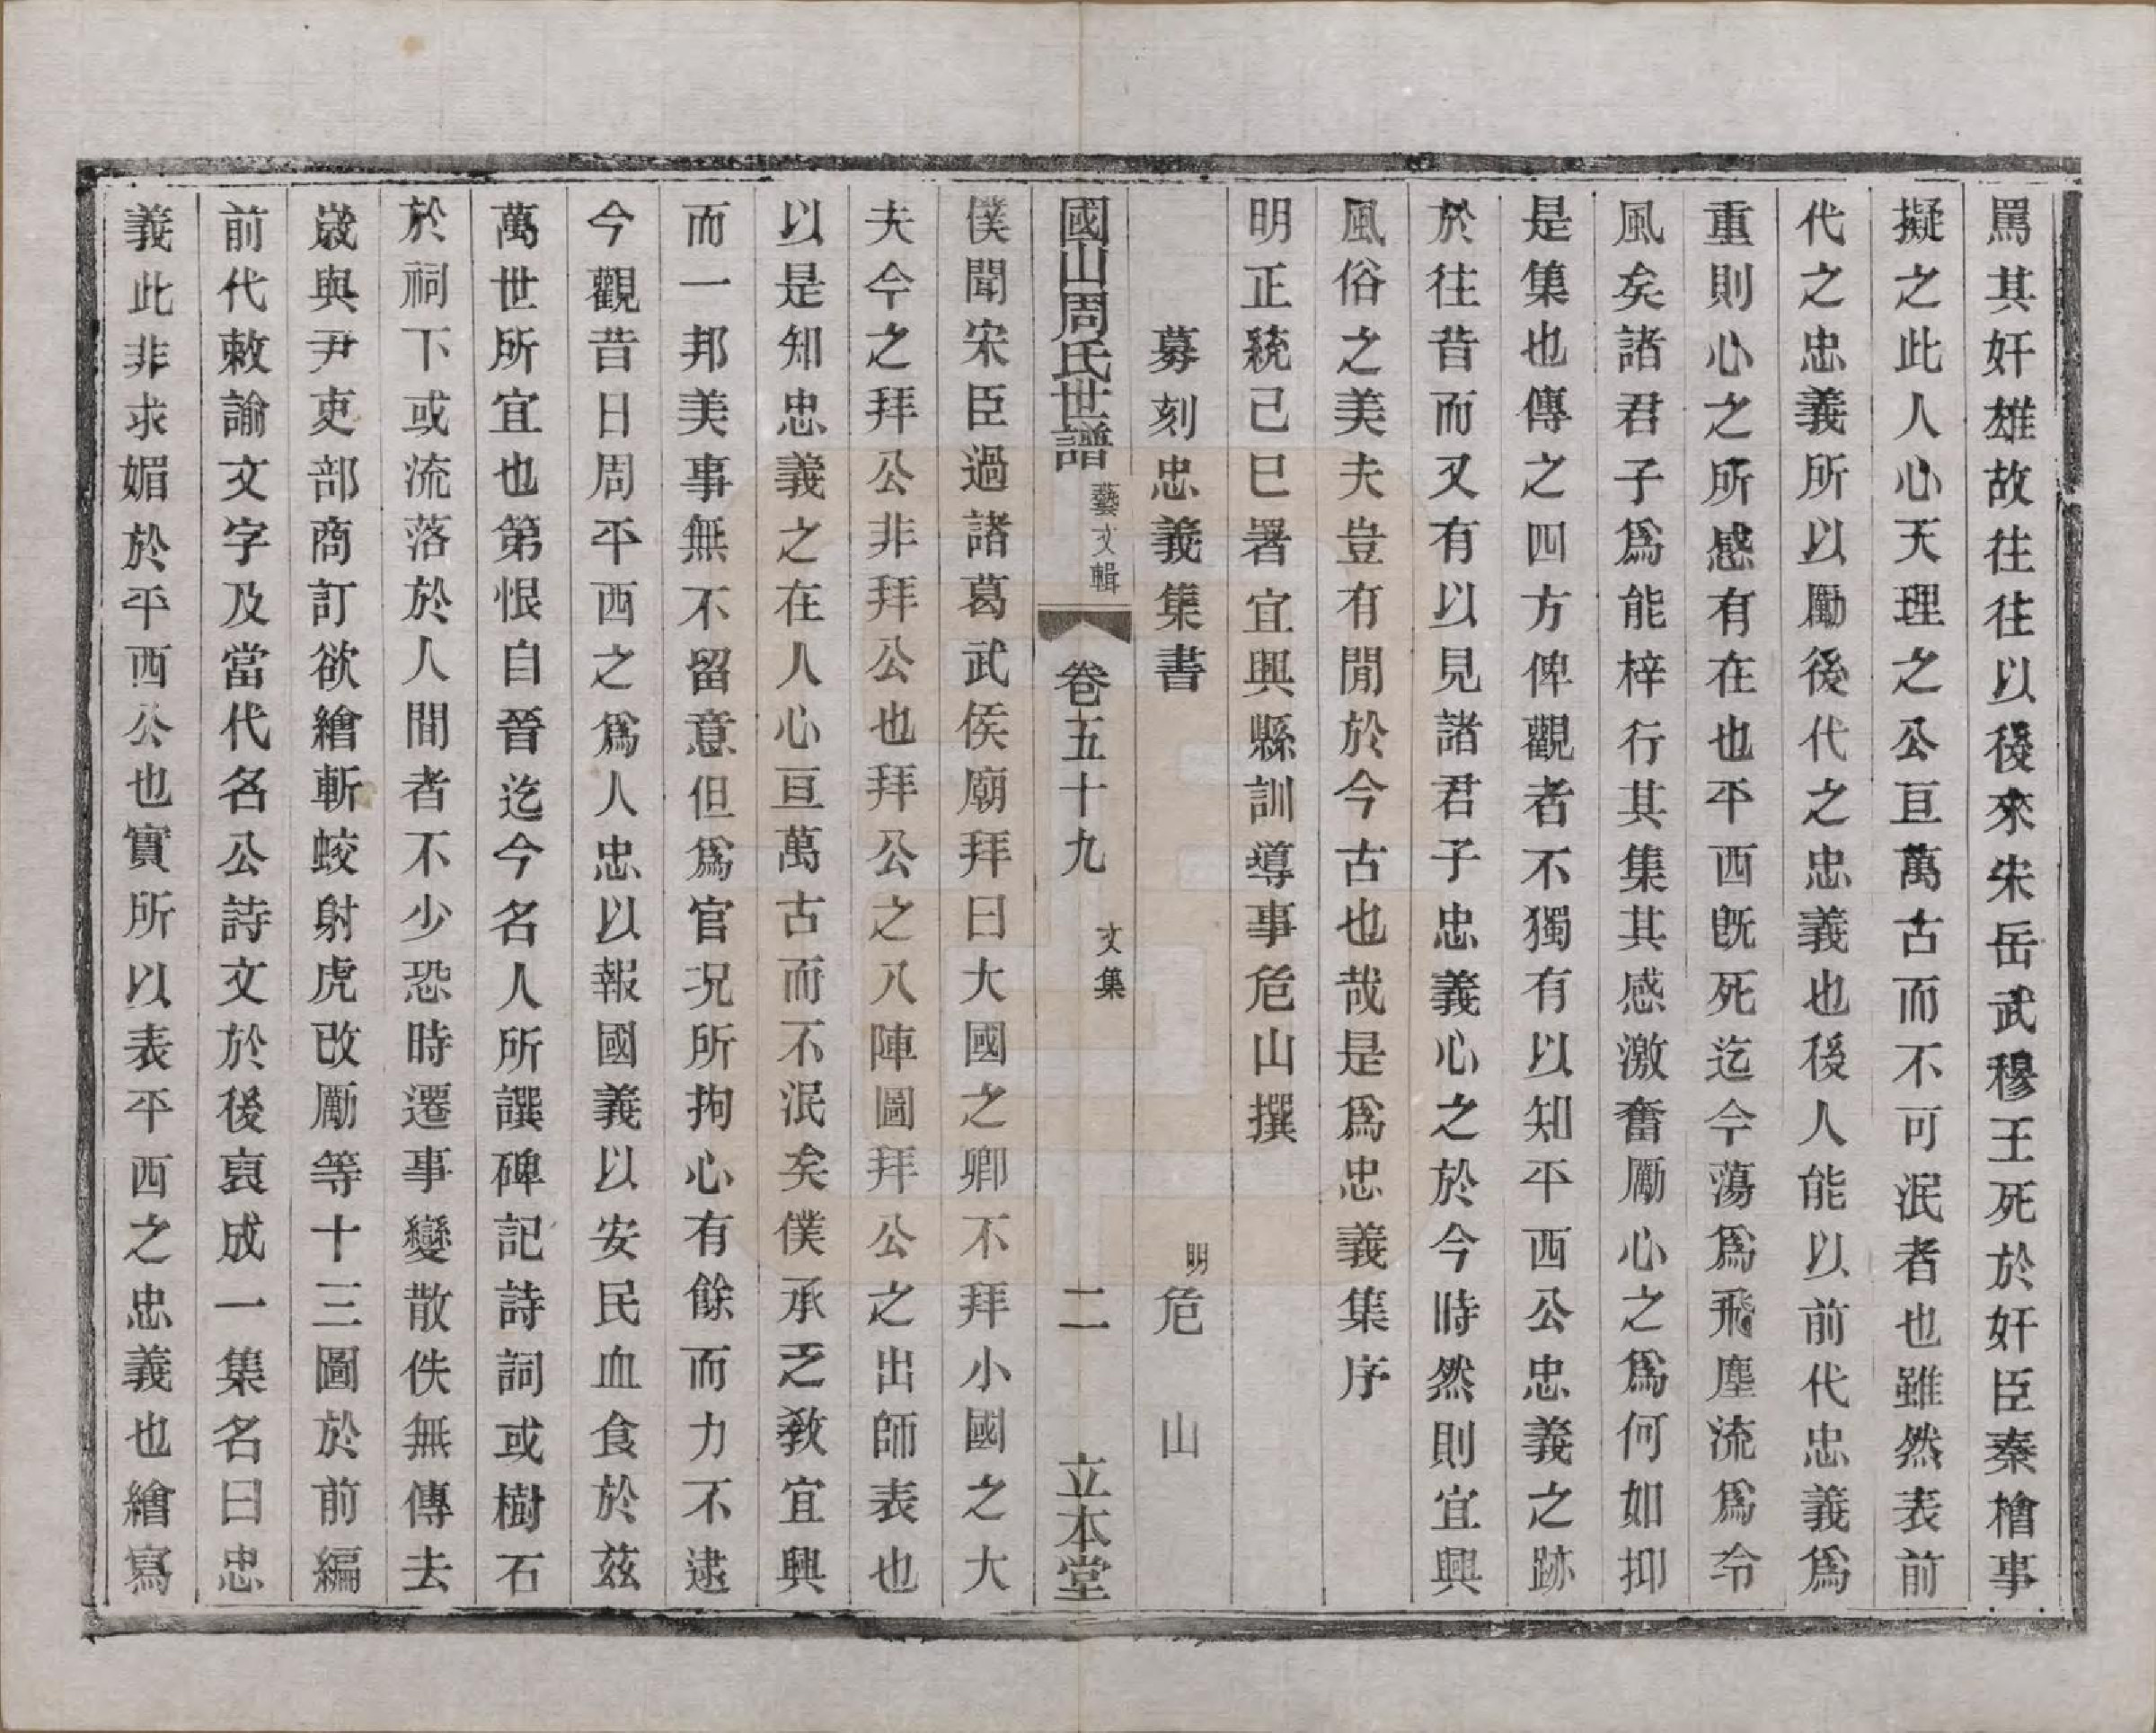 罵其奸雄故往往以後來宋岳武穆王死於奸臣秦檜事
擬之此人心天理之公亘萬古而不可泯者也雖然表前
代之忠義所以勵後代之忠義也後人能以前代忠義爲
重則心之所感有在也平西既死迄今蕩爲飛塵流爲冷
風矣諸君子爲能梓行其集其感激奮勵心之爲何如抑
是集也傳之四方俾觀者不獨有以知平西公忠義之跡
於往昔而又有以見諸君子忠義心之於今時然則宜興
風俗之美夫豈有閒於今古也哉是爲忠義集序
明正統己巳署宜興縣訓導事危山撰
募刻忠義集書 明 危山
國山周氏世譜 藝文輯 卷五十九 文集 二 立本堂
僕聞宋臣過諸葛武侯廟拜曰大國之卿不拜小國之大
夫今之拜公非拜公也拜公之八陣圖拜公之出師表也
以是知忠義之在人心亘萬古而不泯矣僕承乏教宜興
而一邦美事無不留意但爲官况所拘心有餘而力不逮
今觀昔日周平西之爲人忠以報國義以安民血食於茲
萬世所宜也第恨自晉迄今名人所譔碑記詩詞或樹石
於祠下或流落於人間者不少恐時遷事變散佚無傳去
歲與尹吏部商訂欲繪斬蛟射虎改勵等十三圖於前編
前代敕諭文字及當代名公詩文於後裒成一集名曰忠
義此非求媚於平西公也實所以表平西之忠義也繪寫